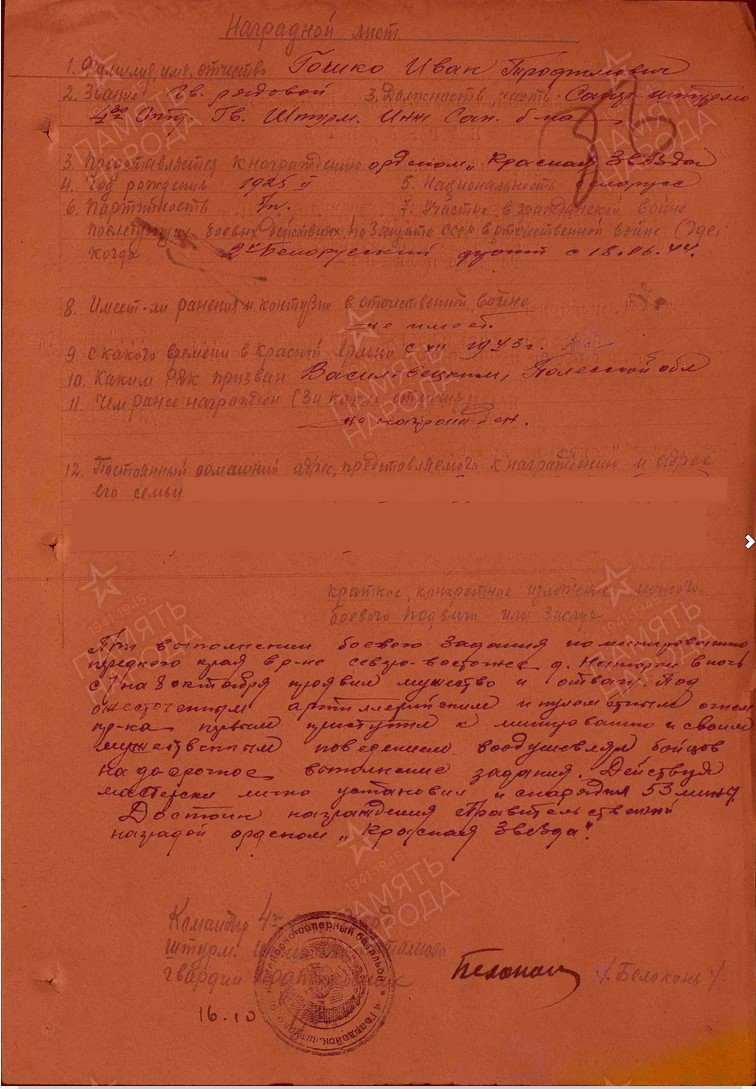 Наградной лист
1. Фамилия, имя, отчество Гошко Иван Трофимович
2. Звание Гв. рядовой 3. Должность, часть Сапер штурмо
4го Отд. Гв. Штурм. Инж Сап. б-на
3. Представляется к награждению орденом „Красная Звезда
4. Год рождения 1925 г 5. Национальность белорус
6. Партийность б/п. 7. Участие в гражданской войне
боевых действиях по защите СССР в отечественной войне (где,
когда 2й Белорусский фронт с 18.06.44.
8. Имеет-ли ранения и контузию в отечественной войне
не имеет
9. С какого времени в красной армии с 1943г.
10. Каким РВК призван Василевецким, Полесской обл
11. Чем ранее награжден (за какие отличия)
не награжден.
12. Постоянный домашний адрес, представляемого к награждению и адрес
его семьи
краткое, конкретное изложение личного
боевого подвига или заслуг
При выполнении боевого задания по минированию
переднего края в р-не северо-восточнее д. в ночь
с 7 на 8 октября проявил мужество и отвагу. Под
ожесточенным артиллерийским и пулеметным огнем
пр-ка первым приступил к минированию и своим
мужественным поведением воодушевлял бойцов
на досрочное выполнение задания. Действуя
мастерски лично установил и снарядил 53 мины.
Достоин награждения Правительственной
наградой орденом „Красная Звезда".
Командир 4го
штурм.
гвардии
Белоконь /Белоконь/
16.10